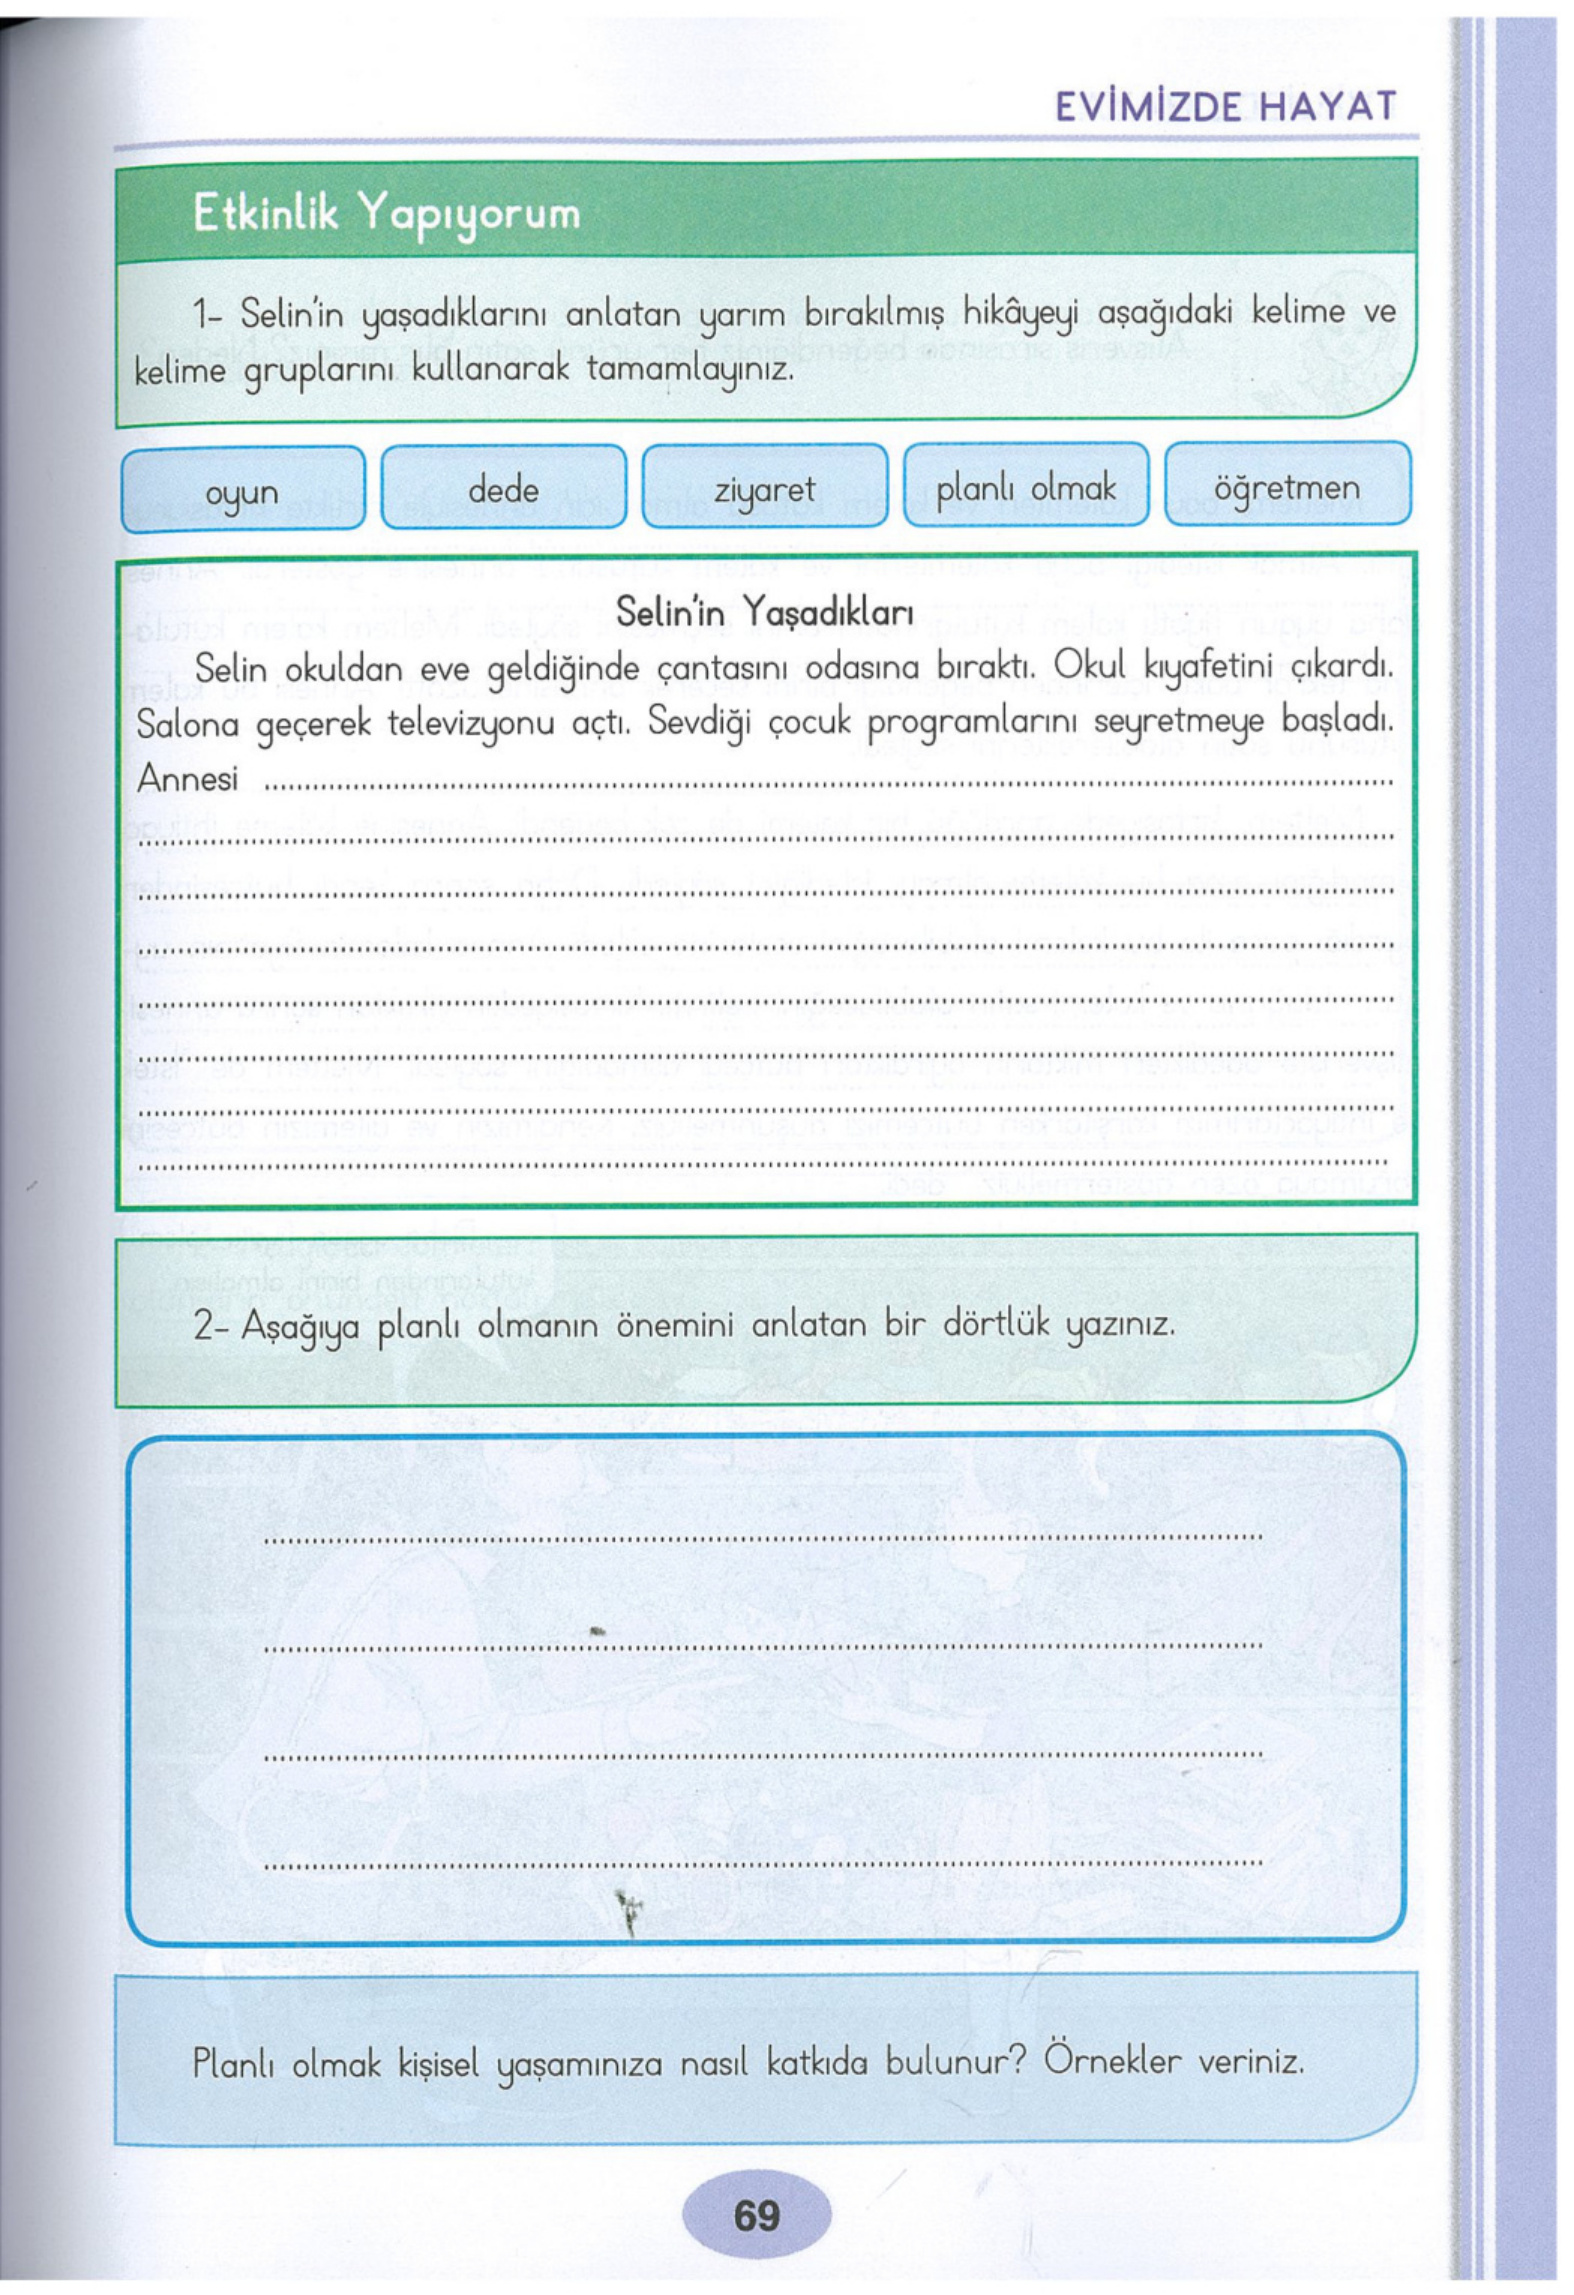 EVİMİZDE HAYAT
Etkinlik Yapıyorum
1- Selin'in yaşadıklarını anlatan yarım bırakılmış hikâyeyi aşağıdaki kelime ve
kelime gruplarını kullanarak tamamlayınız.
oyun
dede
ziyaret
planlı olmak
öğretmen
Selin'in Yaşadıkları
Selin okuldan eve geldiğinde çantasını odasına bıraktı. Okul kıyafetini çıkardı.
Salona geçerek televizyonu açtı. Sevdiği çocuk programlarını seyretmeye başladı.
Annesi
2- Aşağıya planlı olmanın önemini anlatan bir dörtlük yazınız.
Planlı olmak kişisel yaşamınıza nasıl katkıda bulunur? Örnekler veriniz.
69